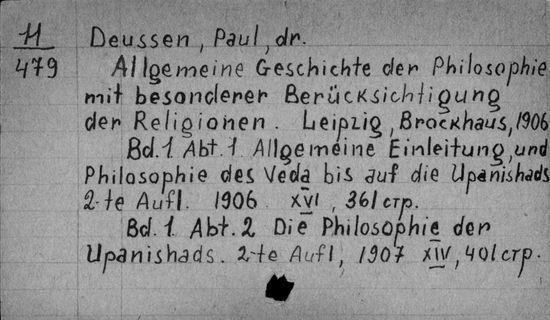 11
479
Deussen, Paul, dr.
Allgemeine Geschichte der Philosophie
mit besonderer Berücksichtigung
der Religionen. Leipzig, Brockhaus, 1906
Bd. 1 Abt. 1 Allgemeine Einleitung, und
Philosophie des Veda bis auf die Upanishads
2-te Aufl. 1906. XVI, 361 стр.
Bd. 1. Abt. 2 Die Philosophie der
Upanishads. 2-te Aufl, 1907 XIV, 401 стр.